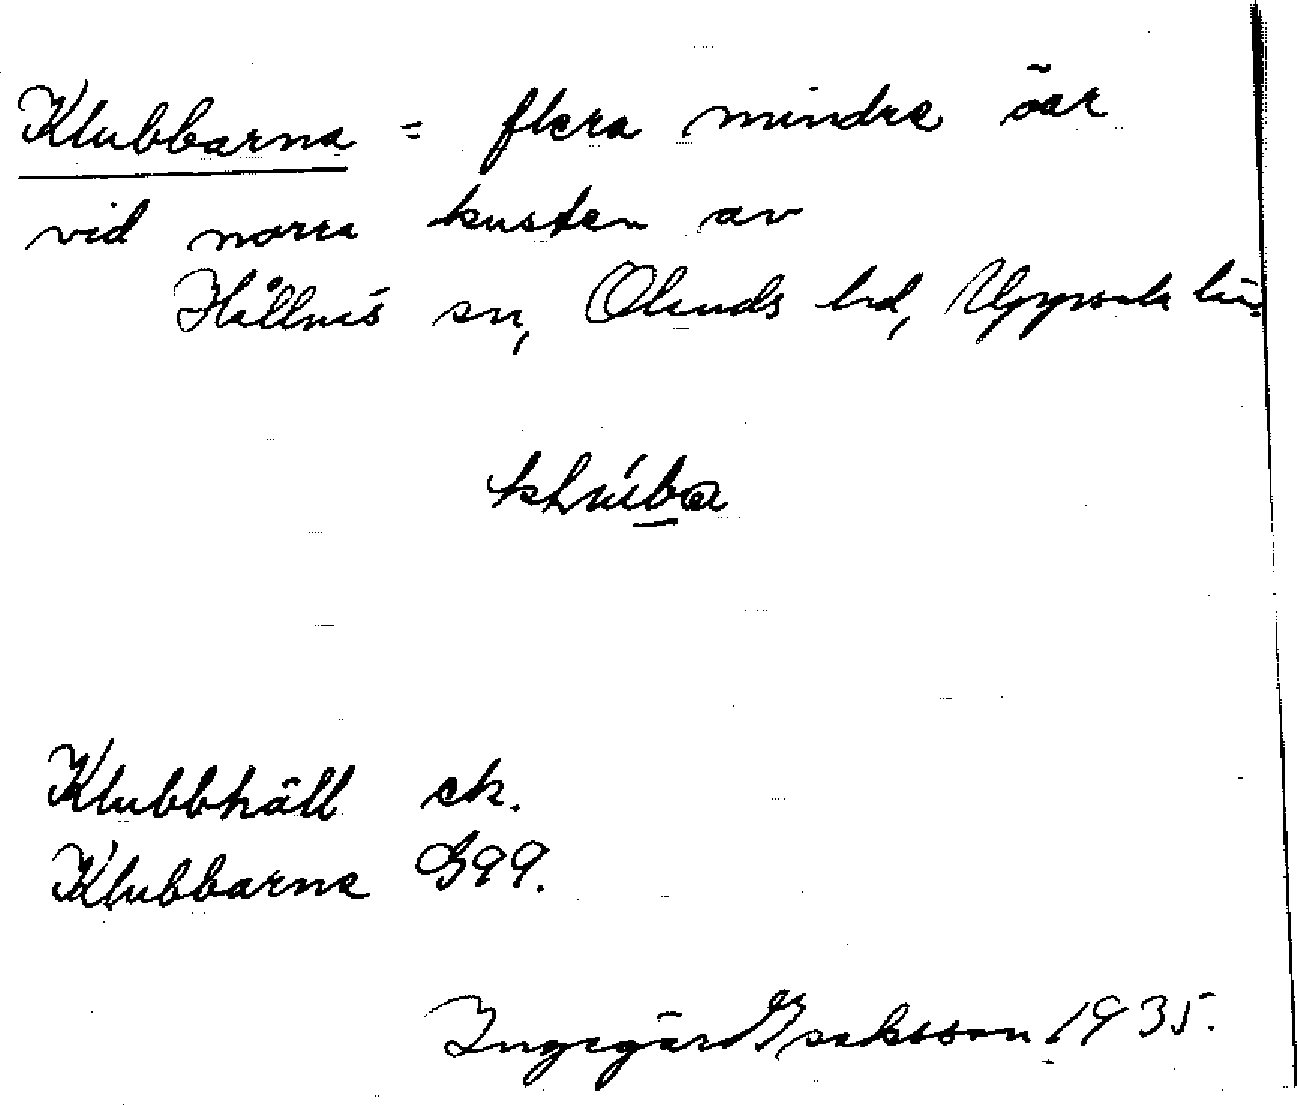 Klubbarna = flera mindre öar
vid norra kusten av
Hållnäs sn, Olands hd, Uppsala län
Klubbhäll ek.
Klubbarne G99.
Ingegärd Isaksson 1935.